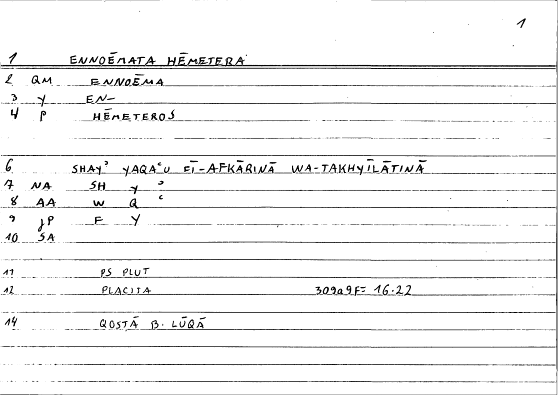 1
1 ENNOĒMATA HĒMETERA
2 QM ENNOĒMA
3 Y EN-
4 P HĒMETEROS
6 SHAYʾ YAQAʿU FĪ-AFKĀRINĀ WA-TAKHYĪLĀTINĀ
7 NA SH Y ʾ
8 AA W Q ʿ
9 JP F Y
10 SA
11 PS PLUT
12 PLACITA 309a9F= 16.22
14 QOSTĀ B. LŪQĀ